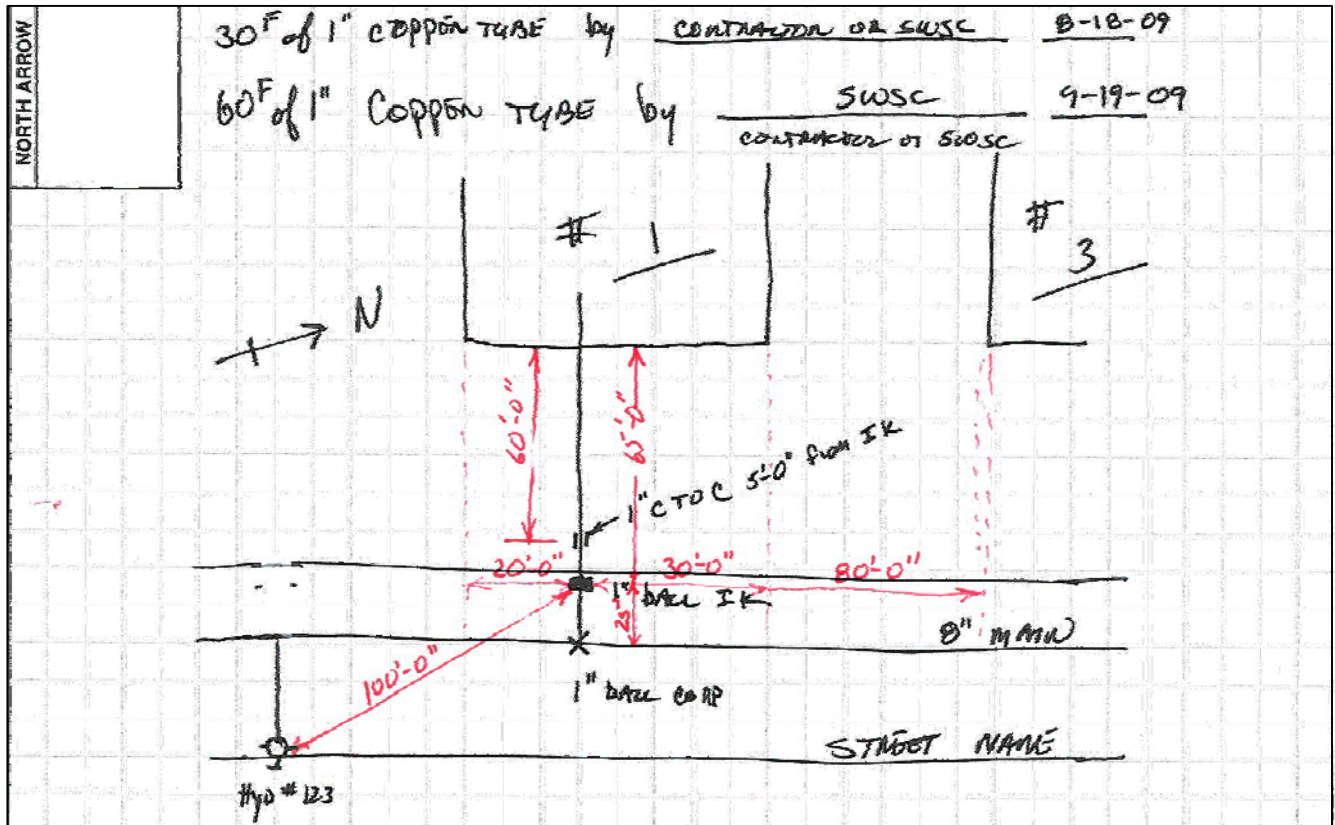 NORTH ARROW
30F of 1" COPPER TUBE by CONTRACTOR OR SWSC 8-18-09
60F of 1" COPPER TUBE by SWSC 9-19-09
CONTRACTOR or SWSC
# 1
# 3
N
60'-0"
65'-0"
1" C TO C 5'-0" from IK
20'-0"
30'-0"
80'-0"
1" BALL IK
8" MAIN
100'-0"
1" BALL CORP
STREET NAME
Hyd # 123